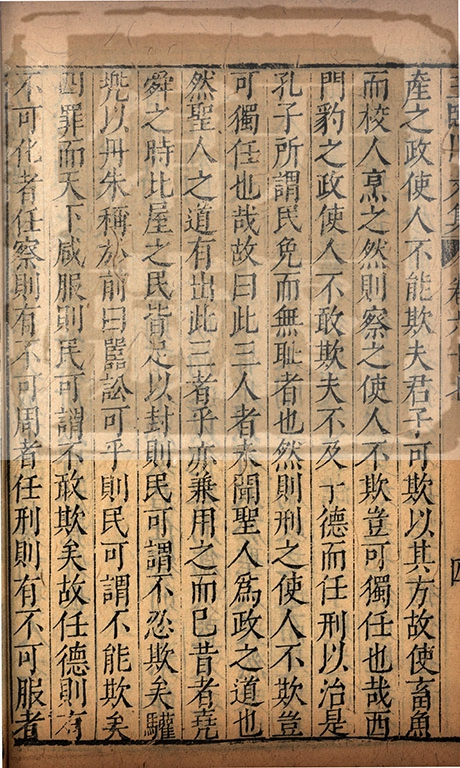 王臨川文集 卷六十七 四
產之政使人不能欺夫君子可欺以其方故使畜魚
而校人烹之然則察之使人不欺豈可獨任也哉西
門豹之政使人不敢欺夫不及于德而任刑以治是
孔子所謂民免而無耻者也然則刑之使人不欺豈
可獨任也哉故曰此三人者未聞聖人爲政之道也
然聖人之道有出此三者乎亦兼用之而已昔者堯
舜之時比屋之民皆足以封則民可謂不忍欺矣驩
兠以丹朱稱於前曰嚚訟可乎則民可謂不能欺矣
四罪而天下咸服則民可謂不敢欺矣故任德則有
不可化者任察則有不可周者任刑則有不可服者